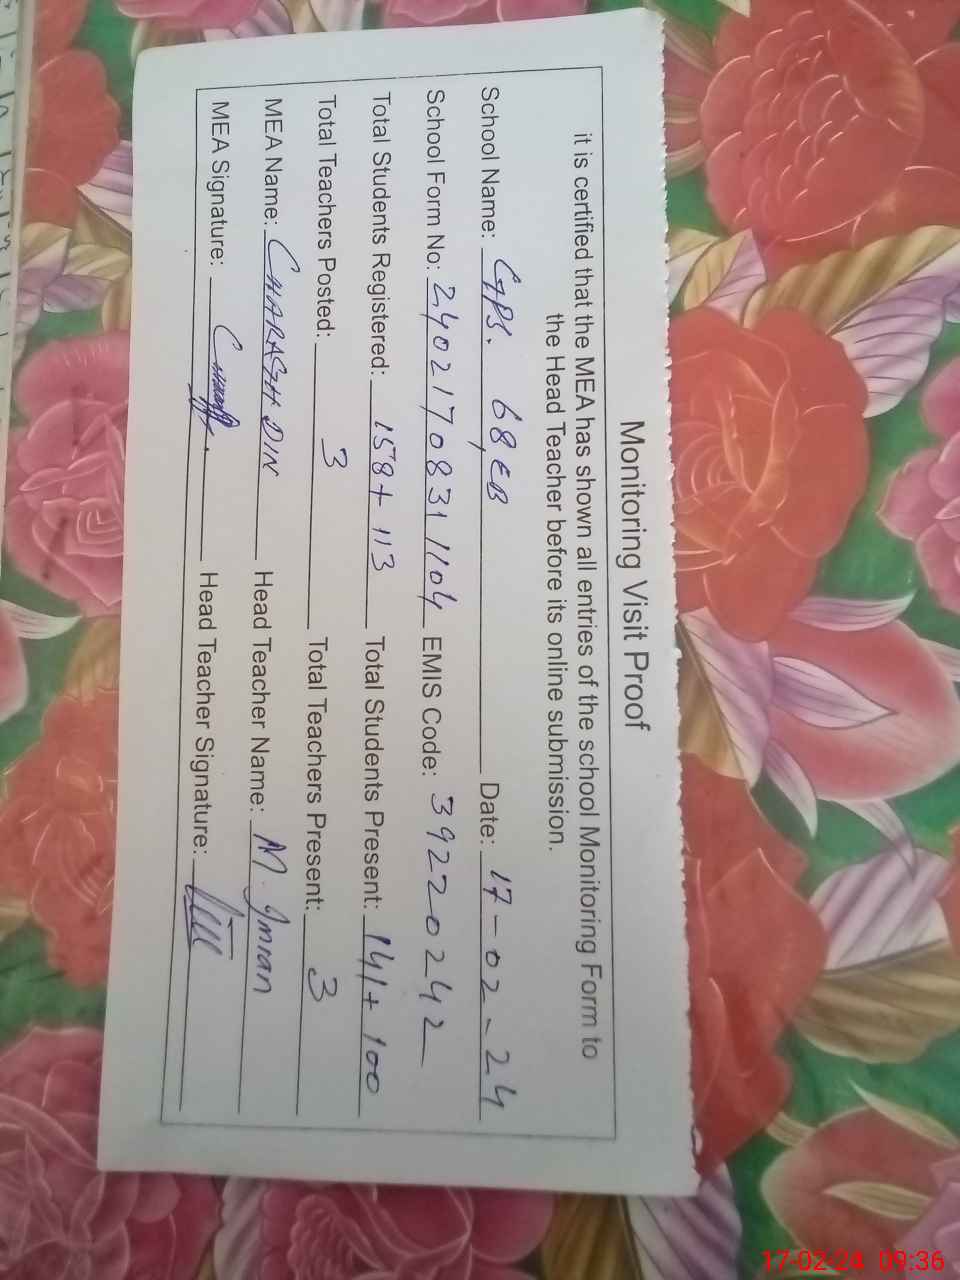 Monitoring Visit Proof
it is certified that the MEA has shown all entries of the school Monitoring Form to
the Head Teacher before its online submission.
School Name: GPS. 68, EB Date: 17-02-24
School Form No: 2402170831 1104 EMIS Code: 39220242
Total Students Registered: 158+113 Total Students Present: 141+100
Total Teachers Posted: 3 Total Teachers Present: 3
MEA Name: CHARAGH DIN Head Teacher Name: M. Imran
MEA Signature: Head Teacher Signature:
17-02-24 09:36